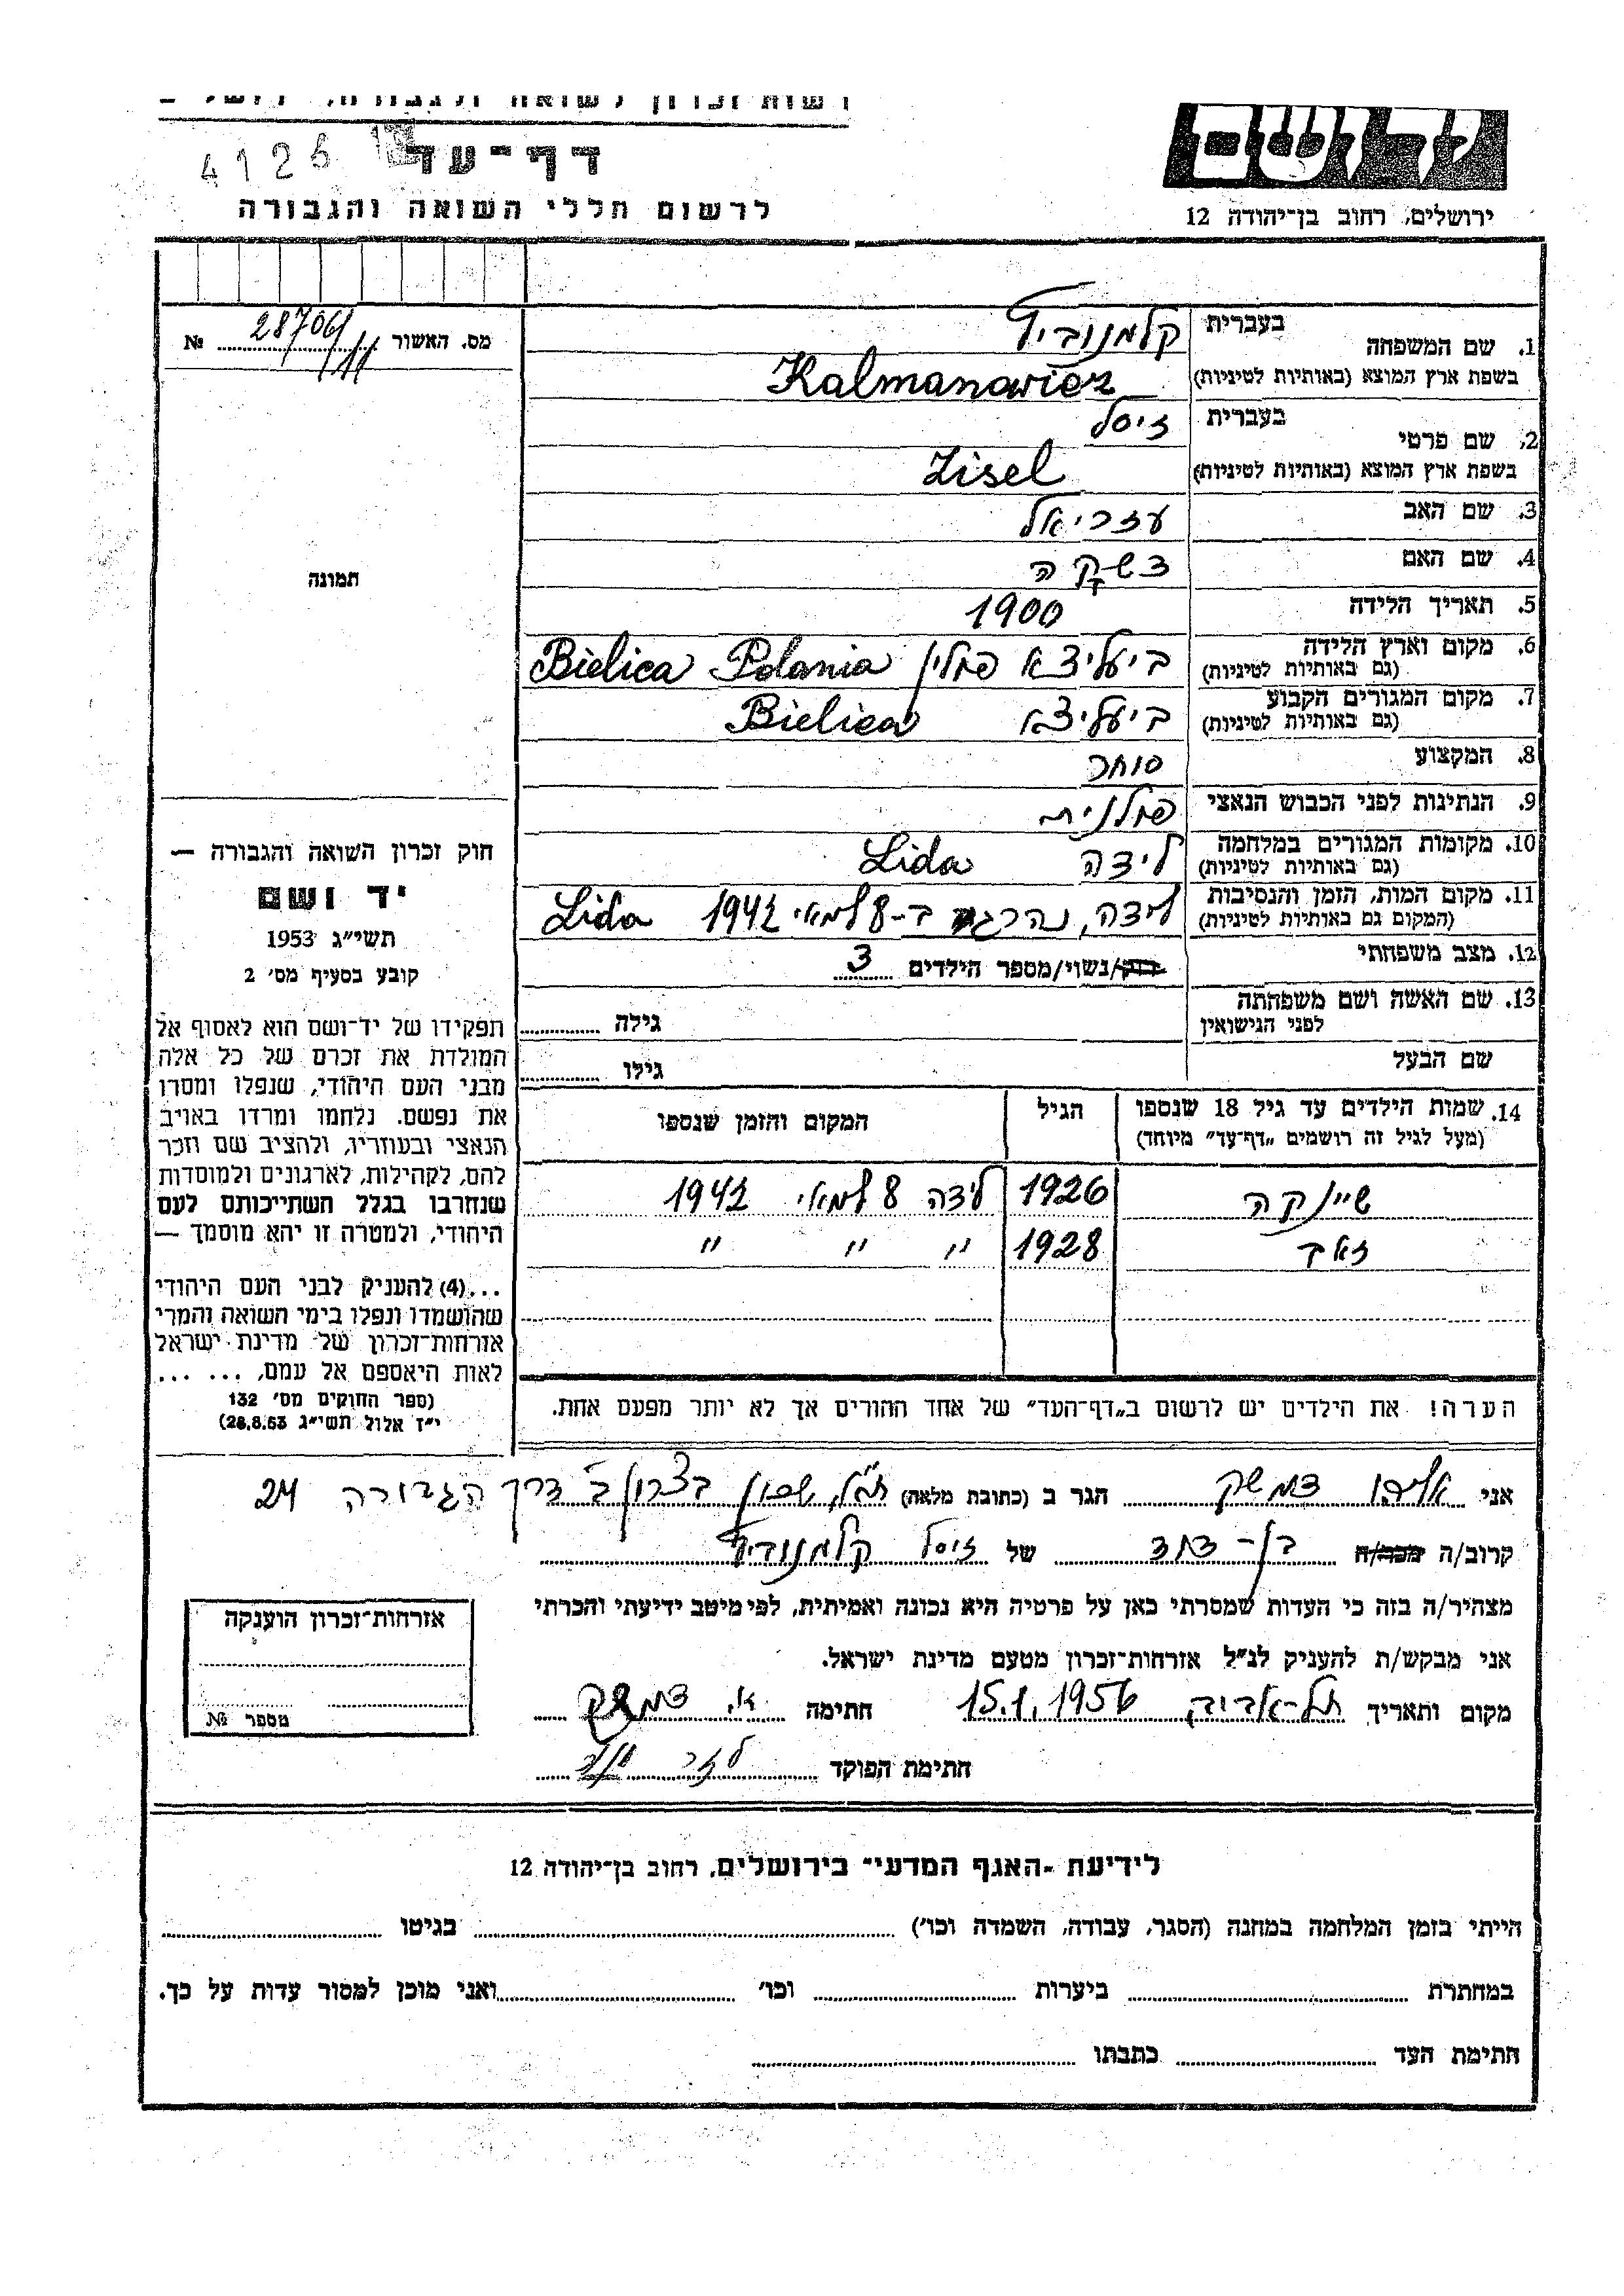 4126
דף־עד
לרשום חללי השואה והגבורה
ירושלים, רחוב בן־יהודה 12
מס. האשור 28706/11 №
1. שם המשפחה בעברית קלמנוביץ
בשפת ארץ המוצא (באותיות לטיניות) Kalmanowicz
2. שם פרטי בעברית זיסל
בשפת ארץ המוצא (באותיות לטיניות) Zisel
3. שם האב עזריאל
4. שם האם
5. תאריך הלידה 1900
6. מקום וארץ הלידה ביעליצא פולין Bielica Polania
(גם באותיות לטיניות)
7. מקום המגורים הקבוע ביעליצא Bielica
(גם באותיות לטיניות)
8. המקצוע סוחר
9. הנתינות לפני הכבוש הנאצי פולנית
10. מקומות המגורים במלחמה לידה Lida
(גם באותיות לטיניות)
11. מקום המות, הזמן והנסיבות לידה, נהרג ב-8 למאי 1942 Lida
(המקום גם באותיות לטיניות)
12. מצב משפחתי רוק/נשוי/מספר הילדים 3
13. שם האשה ושם משפחתה גילה
לפני הנישואין
שם הבעל גילו
14. שמות הילדים עד גיל 18 שנספו הגיל המקום והזמן שנספו
(מעל לגיל זה רושמים „דף־עד״ מיוחד)
שיינקה 1926 לידה 8 למאי 1942
זאב 1928 " " " "
הערה! את הילדים יש לרשום ב„דף־העד״ של אחד ההורים אך לא יותר מפעם אחת.
תמונה
חוק זכרון השואה והגבורה —
יד ושם
תשי״ג 1953
קובע בסעיף מס׳ 2
תפקידו של יד־ושם הוא לאסוף אל
המולדת את זכרם של כל אלה
מבני העם היהודי, שנפלו ומסרו
את נפשם. נלחמו ומרדו באויב
הנאצי ובעוזריו, ולהציב שם וזכר
להם, לקהילות, לארגונים ולמוסדות
שנחרבו בגלל השתייכותם לעם
היהודי, ולמטרה זו יהא מוסמך —
...(4) להעניק לבני העם היהודי
שהושמדו ונפלו בימי השואה והמרי
אזרחות־זכרון של מדינת ישראל
לאות היאספם אל עמם, ... ...
(ספר החוקים מס׳ 132
י״ז אלול תשי״ג 28.8.53)
אני דמשק הגר ב (כתובת מלאה) ת"א, שכון בצרון ב' דרך הגבורה 24
קרוב/ה מכר/ה בן-דוד של זיסל קלמנוביץ
מצהיר/ה בזה כי העדות שמסרתי כאן על פרטיה היא נכונה ואמיתית, לפי מיטב ידיעתי והכרתי
אני מבקש/ת להעניק לנ״ל אזרחות־זכרון מטעם מדינת ישראל.
מקום ותאריך תל-אביב 15.1.1956 חתימה א. דמשק
חתימת הפוקד
אזרחות־זכרון הוענקה
מספר №
לידיעת -האגף המדעי־ בירושלים, רחוב בן־יהודה 12
הייתי בזמן המלחמה במחנה (הסגר, עבודה, השמדה וכו׳) בגיטו
במחתרת ביערות וכו׳ ואני מוכן למסור עדות על כך.
חתימת העד כתבתו